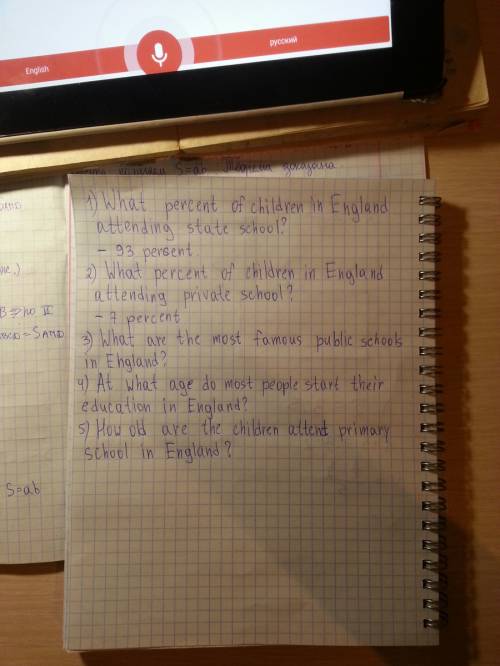 English
русский
S=ab Теорема доказана
1) What percent of children in England
attending state school?
- 93 persent
2) What percent of children in England
attending private school?
- 7 percent
3) What are the most famous public schools
in England?
4) At what age do most people start their
education in England?
5) How old are the children attend primary
school in England?
S=ab